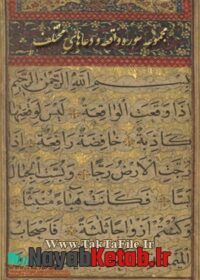 مجموعه سوره واقعه و دعاهای مختلف
بسم الله الرحمن الرحيم
اذا وقعت الواقعة ليس لوقعتها
كاذبة خافضة رافعة اذا
رجت الارض رجا وبست الجبال
بسا فكانت هباء منبثا
وكنتم ازواجا ثلثة فاصحاب
www.TakTaFile.Ir
NayabKetab.Ir